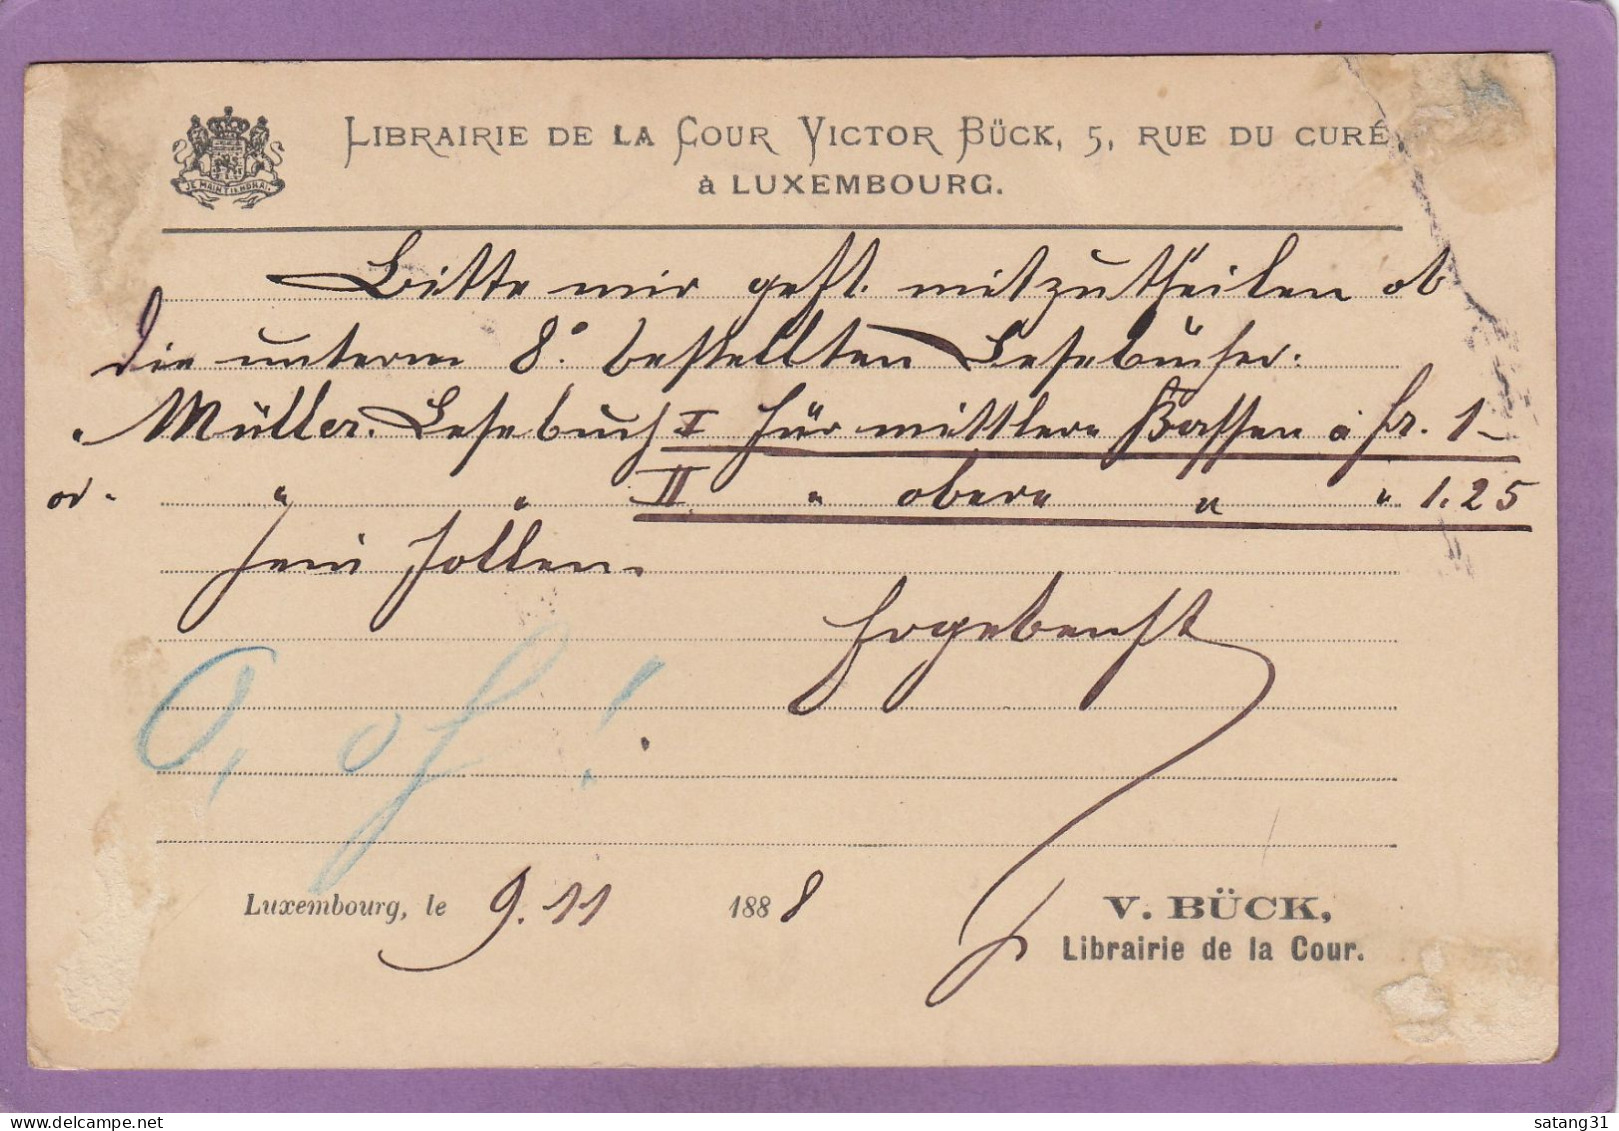 JE MAINTIENDRAI
LIBRAIRIE DE LA COUR VICTOR BÜCK, 5, RUE DU CURÉ,
à LUXEMBOURG.
Bitte mir gefl. mitzutheilen ob
die unterm 8° bestellten Lesebücher:
Müller. Lesebuch I für mittlere Klassen à fr. 1-
od. " " II " obere " " 1.25
sein sollen.
Ergebenst
Luxembourg, le 9.11 1888
V. BÜCK,
Librairie de la Cour.
satang31